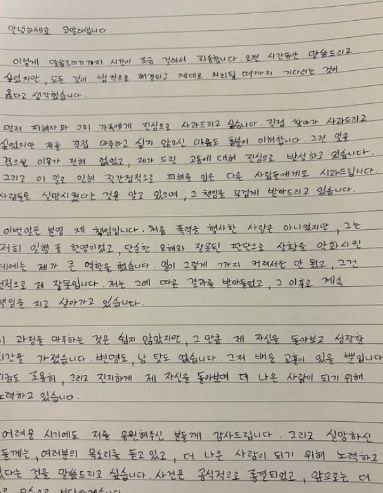 안녕하세요 코알라입니다.
이렇게 말씀드리기까지 시간이 조금 걸려서 죄송합니다. 오랜 시간동안 말씀드리고
싶었지만, 모든 것이 법적으로 해결되고 제대로 처리될 때까지 기다리는 것이
옳다고 생각했습니다.
먼저 피해자와 그의 가족에게 진심으로 사과드리고 싶습니다. 직접 찾아가 사과드리고
싶었지만 저를 직접 마주하고 싶지 않으신 마음도 충분히 이해합니다. 그런 일을
겪으실 이유가 전혀 없었고, 제가 드린 고통에 대해 진심으로 반성하고 있습니다.
그리고 이 일로 인해 직간접적으로 피해를 입은 다른 사람들에게도 사과드립니다.
사람들을 실망시켰다는 것을 알고 있으며, 그 책임을 무겁게 받아들이고 있습니다.
이번일은 분명 제 책임입니다. 처음 폭력을 행사한 사람은 아니었지만, 그는
저희 일행 중 한명이었고, 단순한 오해와 잘못된 판단으로 상황을 악화시킨
데에는 제가 큰 역할을 했습니다. 일이 그렇게 까지 커져서는 안 됐고, 그건
전적으로 제 잘못입니다. 저는 그에 따른 결과를 받아들였고, 그 이후로 계속
책임을 지고 살아가고 있습니다.
이 과정을 마주하는 것은 쉽지 않았지만, 그 만큼 제 자신을 돌아보고 성장할
시간을 가졌습니다. 변명도, 남 탓도 없습니다. 그저 배운 교훈이 있을 뿐입니다
지금도 조용히, 그리고 진지하게 제 자신을 돌아보며 더 나은 사람이 되기 위해
노력하고 있습니다.
어려운 시기에도 저를 응원해주신 분들께 감사드립니다. 그리고 실망하신
분들께는, 여러분의 목소리를 듣고 있고, 더 나은 사람이 되기 위해 노력하고
있다는 것을 말씀드리고 싶습니다. 사건은 공식적으로 종결되었고, 앞으로는 더